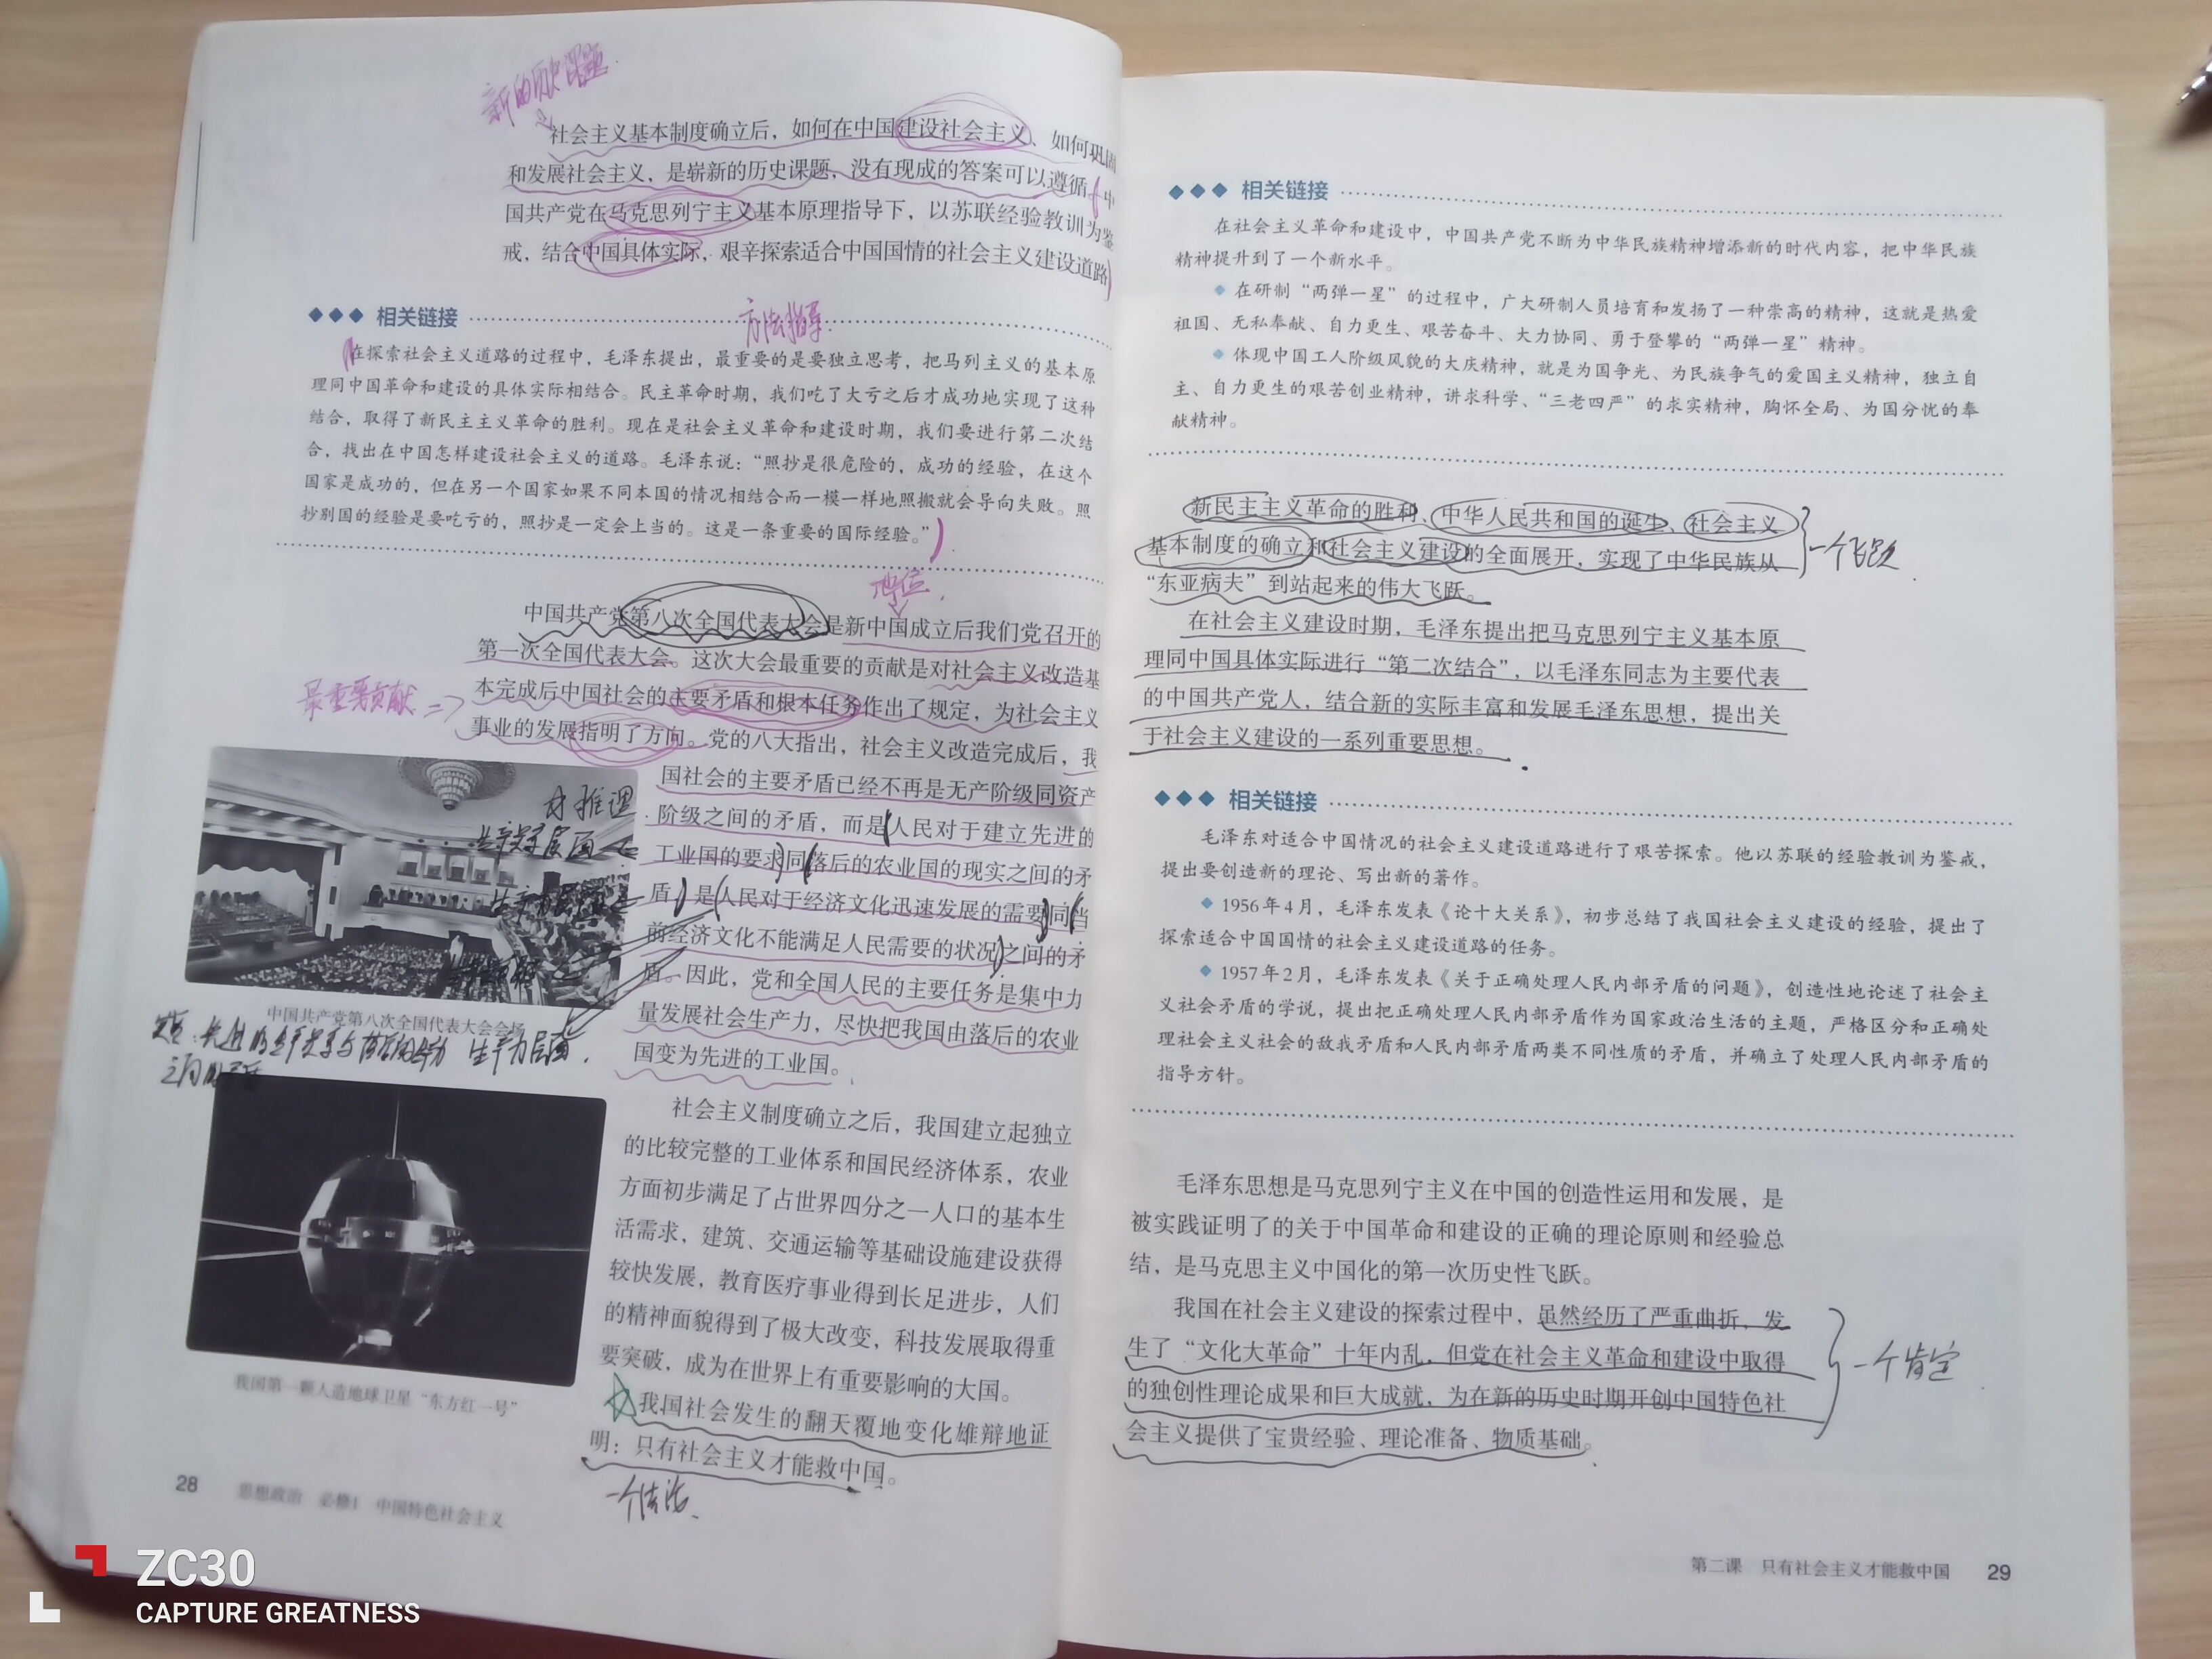 新的历史课题
社会主义基本制度确立后，如何在中国建设社会主义、如何巩固
和发展社会主义，是崭新的历史课题，没有现成的答案可以遵循。中
国共产党在马克思列宁主义基本原理指导下，以苏联经验教训为鉴
戒，结合中国具体实际，艰辛探索适合中国国情的社会主义建设道路
相关链接
方法指导
在探索社会主义道路的过程中，毛泽东提出，最重要的是要独立思考，把马列主义的基本原
理同中国革命和建设的具体实际相结合。民主革命时期，我们吃了大亏之后才成功地实现了这种
结合，取得了新民主主义革命的胜利。现在是社会主义革命和建设时期，我们要进行第二次结
合，找出在中国怎样建设社会主义的道路。毛泽东说：“照抄是很危险的，成功的经验，在这个
国家是成功的，但在另一个国家如果不同本国的情况相结合而一模一样地照搬就会导向失败。照
抄别国的经验是要吃亏的，照抄是一定会上当的。这是一条重要的国际经验。”
地位
中国共产党第八次全国代表大会是新中国成立后我们党召开的
第一次全国代表大会。这次大会最重要的贡献是对社会主义改造基
本完成后中国社会的主要矛盾和根本任务作出了规定，为社会主义
最重要贡献
事业的发展指明了方向。党的八大指出，社会主义改造完成后，我
国社会的主要矛盾已经不再是无产阶级同资产
阶级之间的矛盾，而是人民对于建立先进的
工业国的要求同落后的农业国的现实之间的矛
盾，是人民对于经济文化迅速发展的需要同当
前经济文化不能满足人民需要的状况之间的矛
盾。因此，党和全国人民的主要任务是集中力
量发展社会生产力，尽快把我国由落后的农业
国变为先进的工业国。
生产关系层面
中国共产党第八次全国代表大会会场
生产力层面
社会主义制度确立之后，我国建立起独立
的比较完整的工业体系和国民经济体系，农业
方面初步满足了占世界四分之一人口的基本生
活需求，建筑、交通运输等基础设施建设获得
较快发展，教育医疗事业得到长足进步，人们
的精神面貌得到了极大改变，科技发展取得重
要突破，成为在世界上有重要影响的大国。
我国第一颗人造地球卫星“东方红一号”
我国社会发生的翻天覆地变化雄辩地证
明：只有社会主义才能救中国。
一个结论
28 思想政治 必修1 中国特色社会主义
ZC30
CAPTURE GREATNESS
相关链接
在社会主义革命和建设中，中国共产党不断为中华民族精神增添新的时代内容，把中华民族
精神提升到了一个新水平。
在研制“两弹一星”的过程中，广大研制人员培育和发扬了一种崇高的精神，这就是热爱
祖国、无私奉献、自力更生、艰苦奋斗、大力协同、勇于登攀的“两弹一星”精神。
体现中国工人阶级风貌的大庆精神，就是为国争光、为民族争气的爱国主义精神，独立自
主、自力更生的艰苦创业精神，讲求科学、“三老四严”的求实精神，胸怀全局、为国分忧的奉
献精神。
新民主主义革命的胜利、中华人民共和国的诞生、社会主义
基本制度的确立和社会主义建设的全面展开，实现了中华民族从
“东亚病夫”到站起来的伟大飞跃。
一个飞跃
在社会主义建设时期，毛泽东提出把马克思列宁主义基本原
理同中国具体实际进行“第二次结合”，以毛泽东同志为主要代表
的中国共产党人，结合新的实际丰富和发展毛泽东思想，提出关
于社会主义建设的一系列重要思想。
相关链接
毛泽东对适合中国情况的社会主义建设道路进行了艰苦探索。他以苏联的经验教训为鉴戒，
提出要创造新的理论、写出新的著作。
1956年4月，毛泽东发表《论十大关系》，初步总结了我国社会主义建设的经验，提出了
探索适合中国国情的社会主义建设道路的任务。
1957年2月，毛泽东发表《关于正确处理人民内部矛盾的问题》，创造性地论述了社会主
义社会矛盾的学说，提出把正确处理人民内部矛盾作为国家政治生活的主题，严格区分和正确处
理社会主义社会的敌我矛盾和人民内部矛盾两类不同性质的矛盾，并确立了处理人民内部矛盾的
指导方针。
毛泽东思想是马克思列宁主义在中国的创造性运用和发展，是
被实践证明了的关于中国革命和建设的正确的理论原则和经验总
结，是马克思主义中国化的第一次历史性飞跃。
我国在社会主义建设的探索过程中，虽然经历了严重曲折，发
生了“文化大革命”十年内乱，但党在社会主义革命和建设中取得
的独创性理论成果和巨大成就，为在新的历史时期开创中国特色社
会主义提供了宝贵经验、理论准备、物质基础。
一个肯定
第二课 只有社会主义才能救中国 29